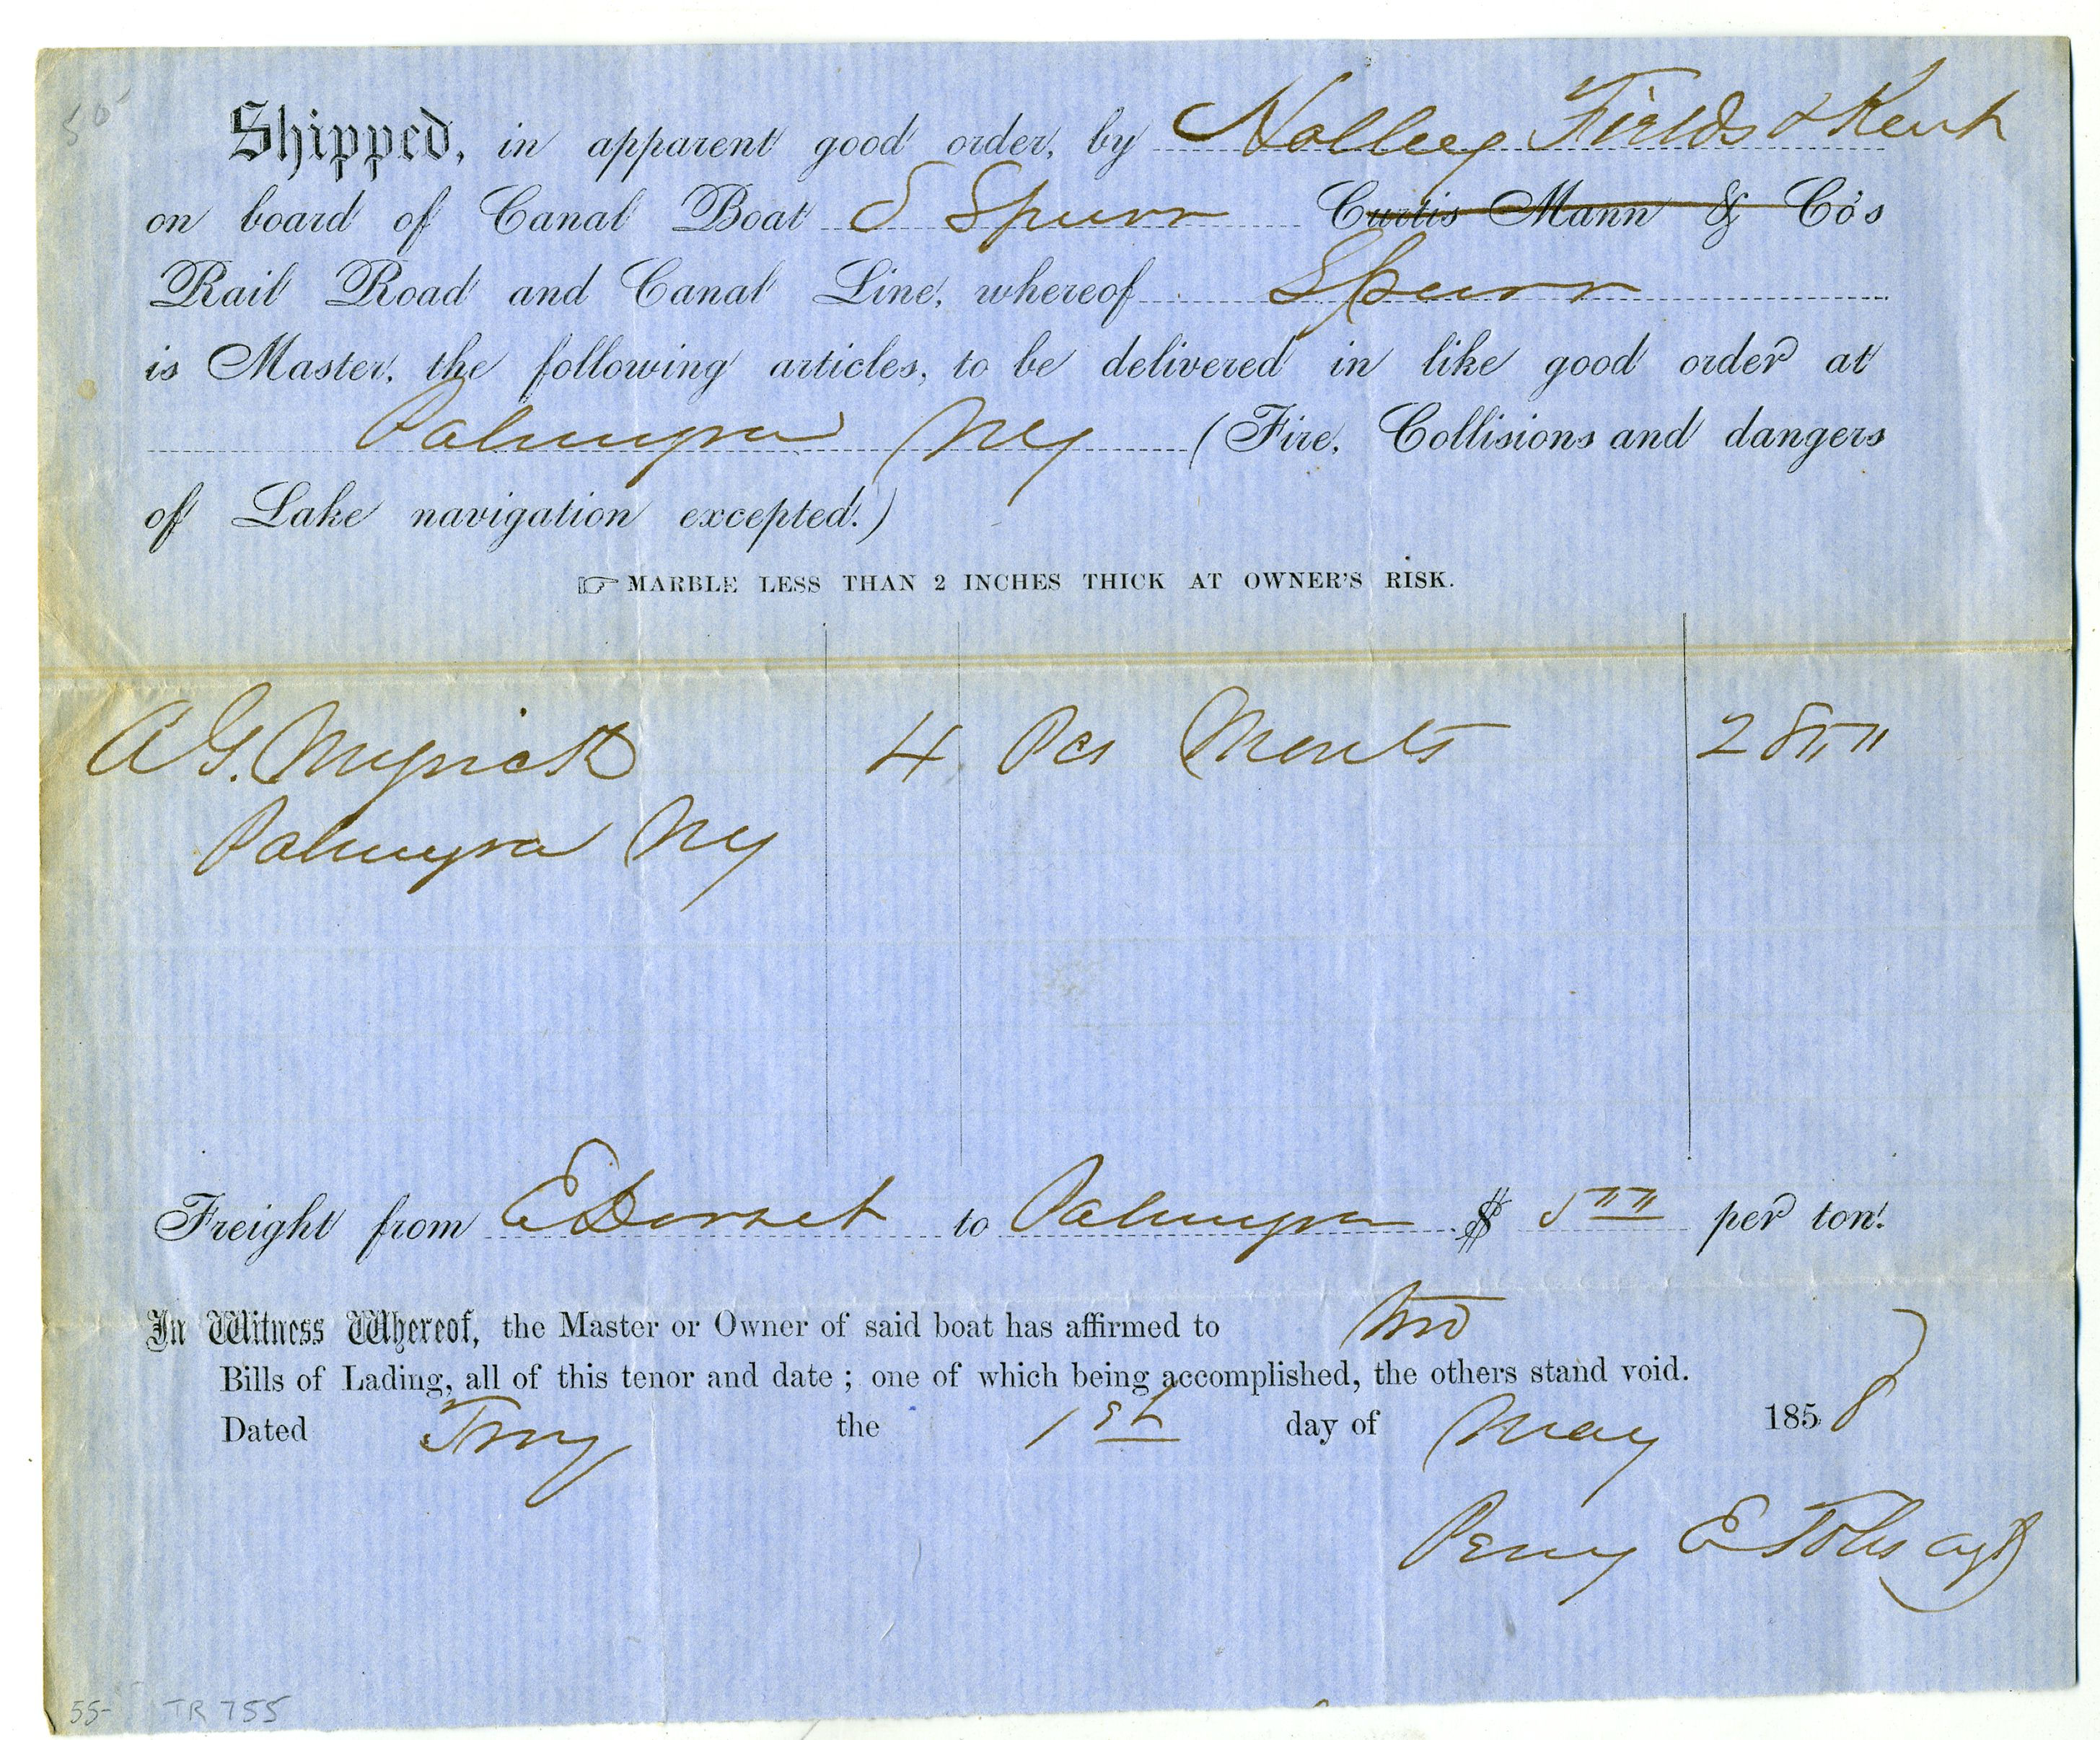 Shipped, in apparent good order, by Holley Fields & Kent
on board of Canal Boat S Spurr Curtis Mann & Co's
Rail Road and Canal Line, whereof Spurr
is Master, the following articles, to be delivered in like good order at
Palmyra NY (Fire, Collisions and dangers
of Lake navigation excepted.)
☞ MARBLE LESS THAN 2 INCHES THICK AT OWNER'S RISK.
A G. Myrick 4 Pcs Monts
Palmyra NY
Freight from E Dorset to Palmyra $ 5 per ton.
In Witness Whereof, the Master or Owner of said boat has affirmed to two
Bills of Lading, all of this tenor and date ; one of which being accomplished, the others stand void.
Dated Troy the 1st day of May 1858
Perry E Toles agt
55- TR 755